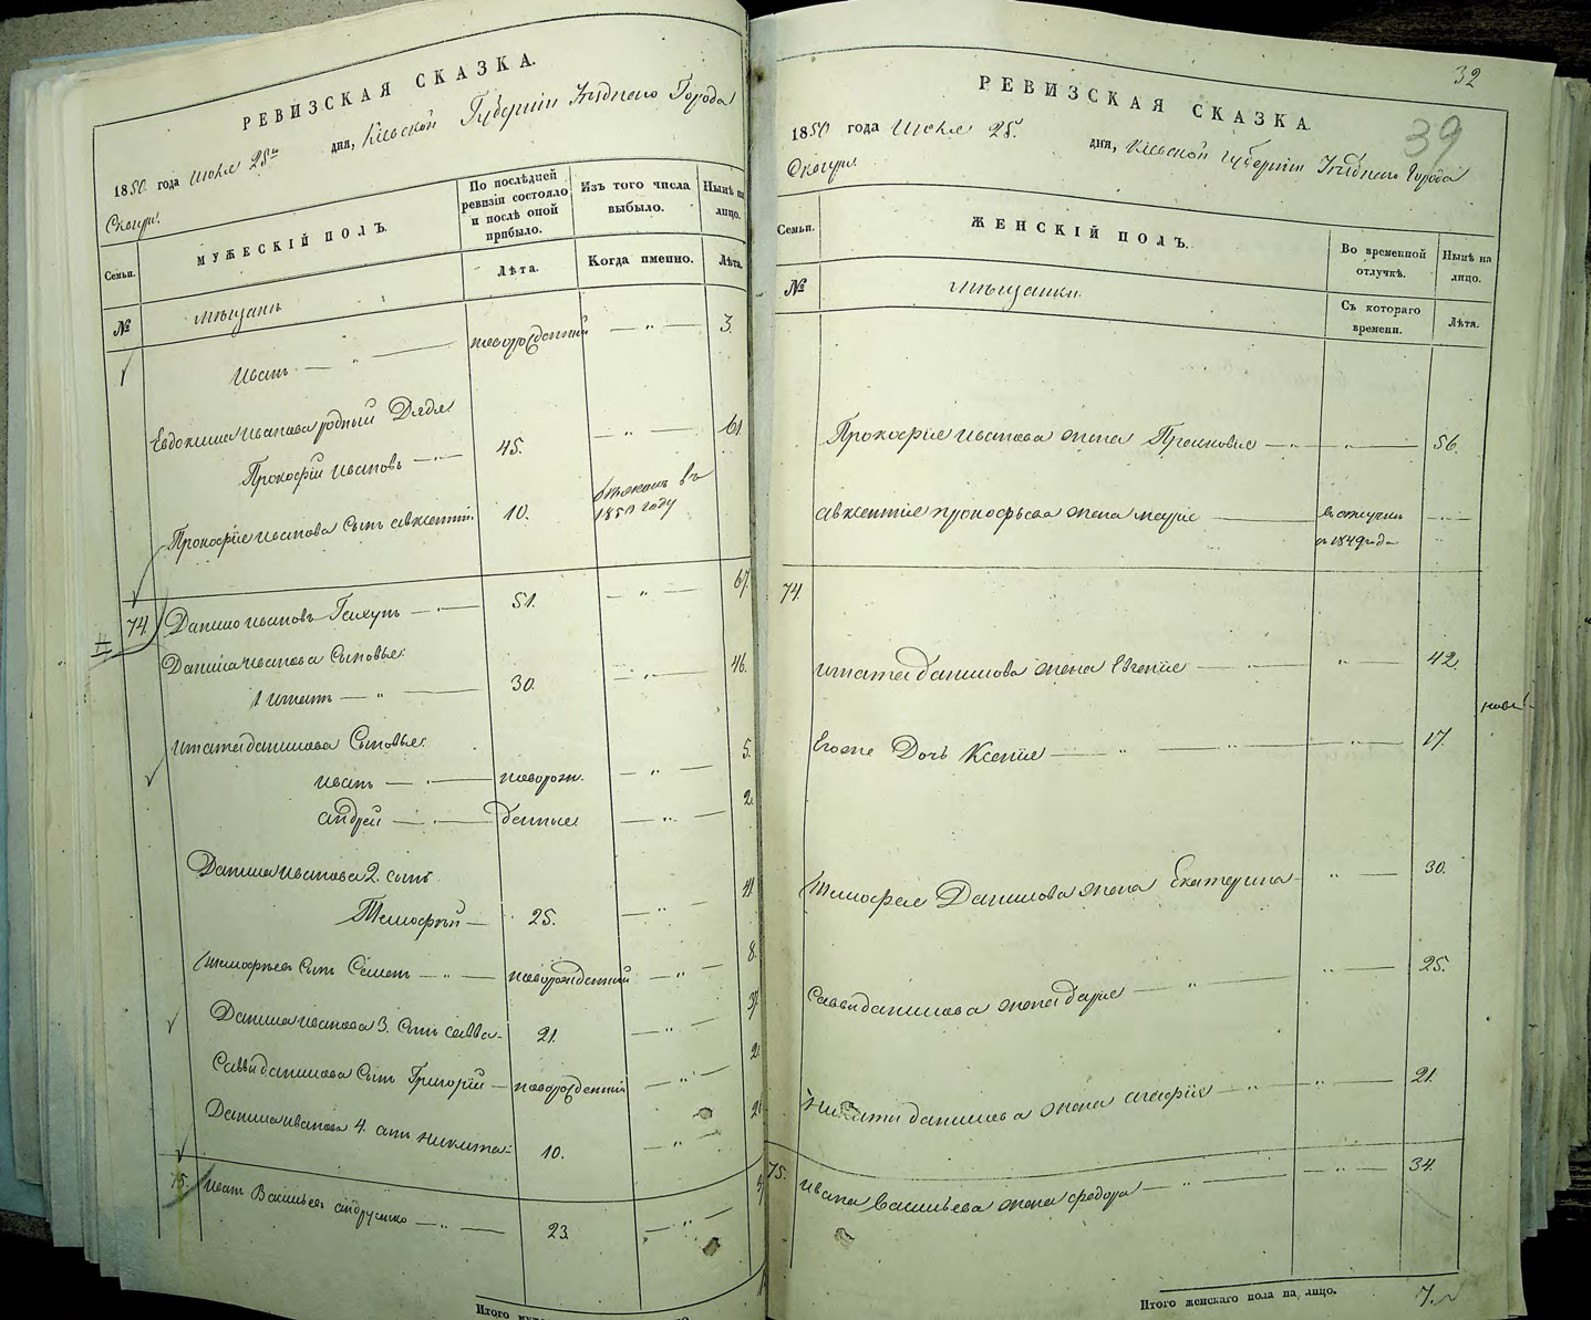 РЕВИЗСКАЯ СКАЗКА.
1850 года Июля 25го дня, Кіевской Губерніи Уѣзднаго Города
Сквиры.
Семьи.
МУЖЕСКІЙ ПОЛЪ.
По послѣдней ревизіи состояло и послѣ оной прибыло.
Изъ того числа выбыло.
Нынѣ на лицо.
Лѣта.
Когда именно.
Лѣта.
№
мѣщанъ
Иванъ — " — новорожденный — " — 3.
Евдокима Иванова родный Дядя
Прокофій Ивановъ — " — 45. — " — 61
Прокофія Иванова Сынъ Авксентій. 10. въ 1850 году
74. Данило Ивановъ — " — 51. — " — 67.
Данила Иванова Сыновья:
1 Игнатъ — " — 30. — " — 46.
Игната Данилова Сыновья:
Иванъ — " — новорож- — " — 5.
Андрей — " — денные — " — 2.
Данила Иванова 2. сынъ
Тимофѣй — 25. — " — 41.
Тимофѣя Сынъ Семенъ — " — новорожденный — " — 8.
Данила Иванова 3. Сынъ Савва — 21. — " — 37.
Саввы Данилова Сынъ Григорій — новорожденный — " — 2.
Данила Иванова 4. сынъ Никита — 10. — " —
75. Иванъ Васильевъ Андрусенко — " — 23. — " —
32
39
РЕВИЗСКАЯ СКАЗКА.
1850 года Июля 25. дня, Кіевской Губерніи Уѣзднаго Города
Сквиры.
Семьи.
ЖЕНСКІЙ ПОЛЪ.
Во временной отлучкѣ.
Нынѣ на лицо.
№
мѣщанки.
Съ котораго времени.
Лѣта.
Прокофія Иванова жена — " — " — 56.
Авксентія Прокофьева жена Марія — въ отлучки
съ 1849 года
74.
Игната Данилова жена Евгенія — " — " — 42.
Егоже Дочь Ксенія — " — " — " — 17.
Тимофея Данилова жена Екатерина — " — 30.
Саввы Данилова жена Дарія — " — " — 25.
Никиты Данилова жена Агафія — " — " — 21.
75. Ивана Васильева жена Федора — " — " — 34.
Итого женскаго пола на лицо. 7.